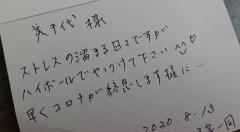 美千代 様
ストレスの溜まる日々ですが
ハイボールでやっつけて下さい
早くコロナが終息します様に…
2020.8.13